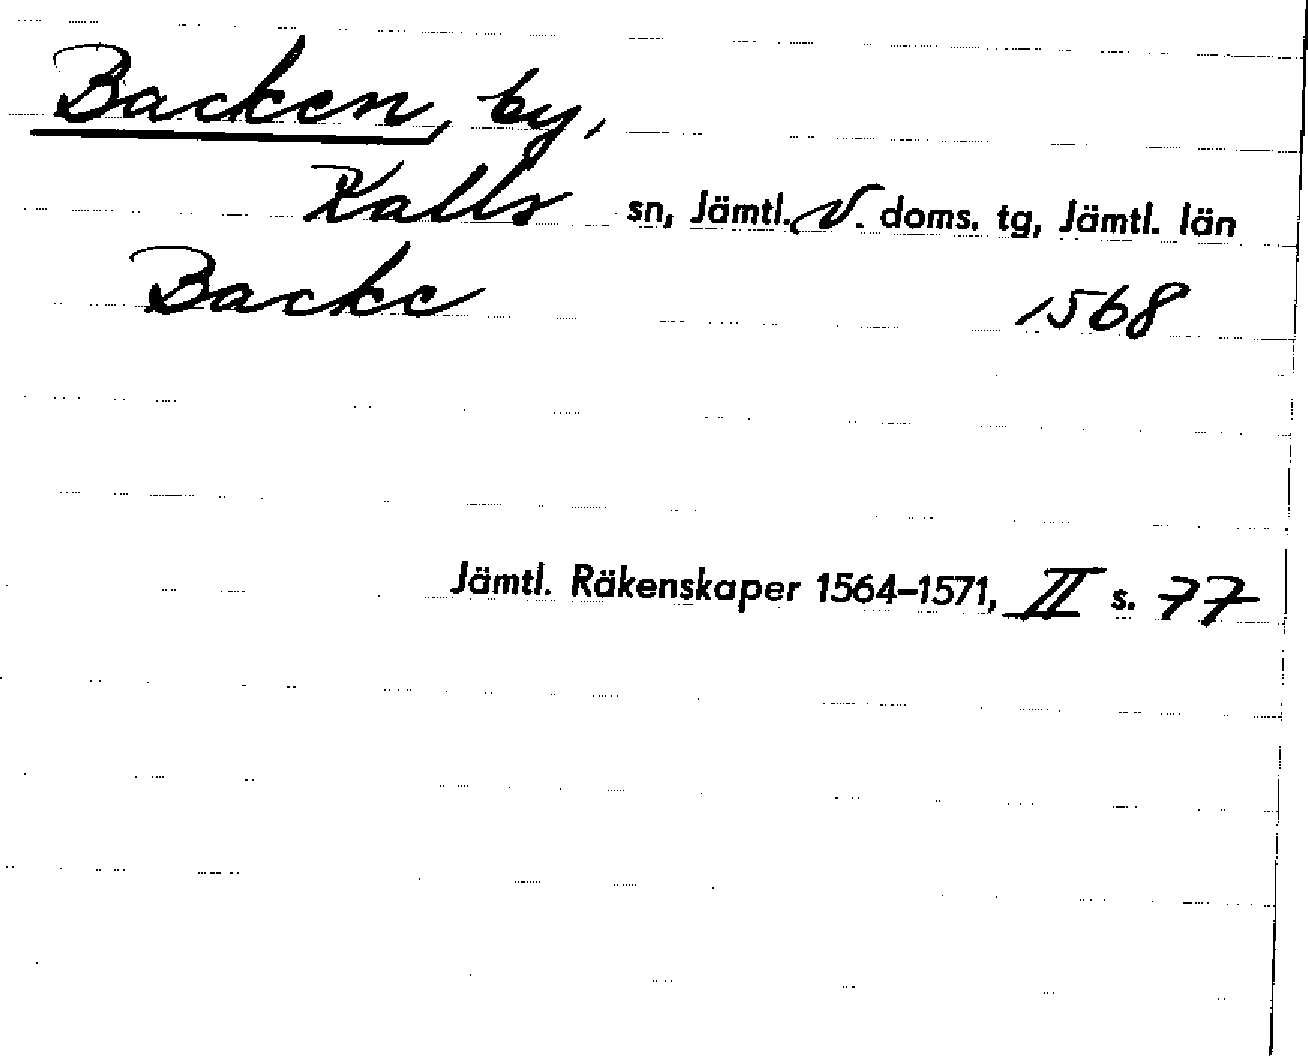 Backen, by,
Kalls sn, Jämtl. V. doms. tg, Jämtl. län
Backe 1568
Jämtl. Räkenskaper 1564–1571, II s. 77